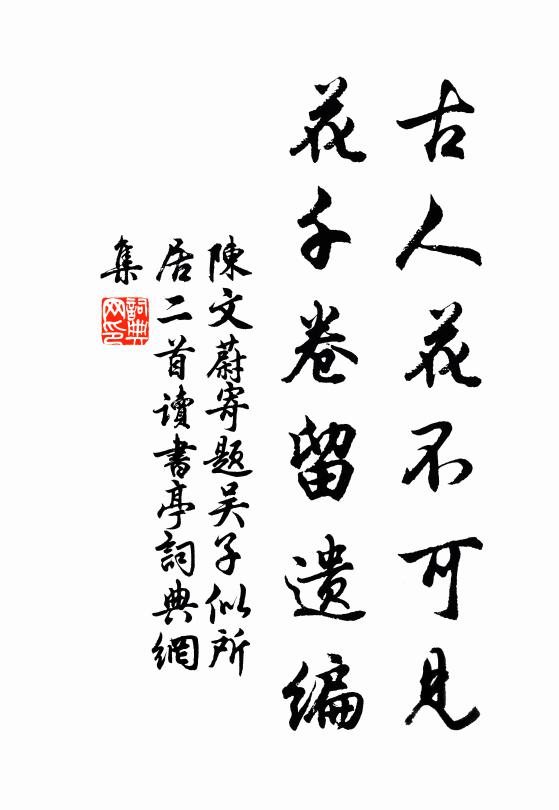 古人花不可見
花千卷留遗编
陳文蔚寄題吴子似所
居二首讀書亭詞典網
集
詞典
网印